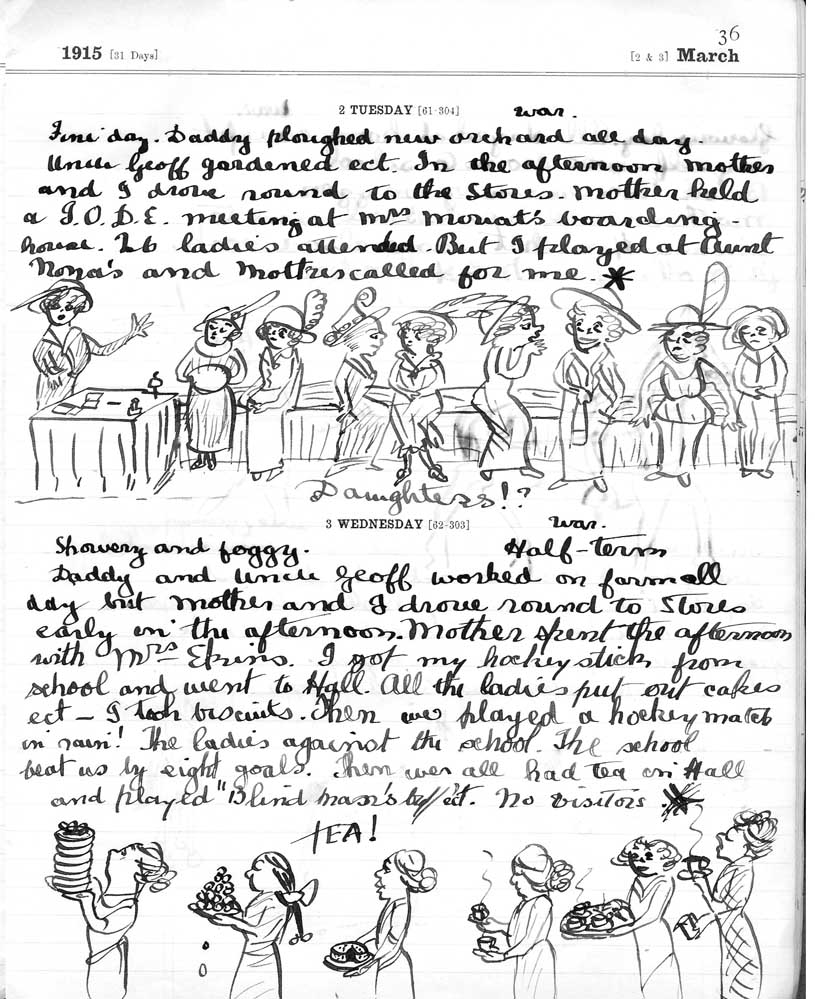 36
1915 [31 Days] [2 & 3] March
2 TUESDAY [61-304] war.
Fine day. Daddy ploughed new orchard all day.
Uncle Geoff gardened ect. In the afternoon mother
and I drove round to the Stores. Mother held
a I.O.D.E. meeting at Mrs Mouat's boarding-
house. 26 ladies attended. But I played at Aunt
Nona's and Mother called for me. *
Daughters!?
3 WEDNESDAY [62-303] war.
Showery and foggy. Half-term
Daddy and Uncle Geoff worked on farm all
day but Mother and I drove round to Stores
early in the afternoon. Mother spent the afternoon
with Mrs Elkins. I got my hockey stick from
school and went to Hall. All the ladies put out cakes
ect - I took biscuits. Then we played a hockey match
in rain! The ladies against the school. The school
beat us by eight goals. Then we all had tea in Hall
and played "Blind man's buff" ect. No visitors. *
TEA!